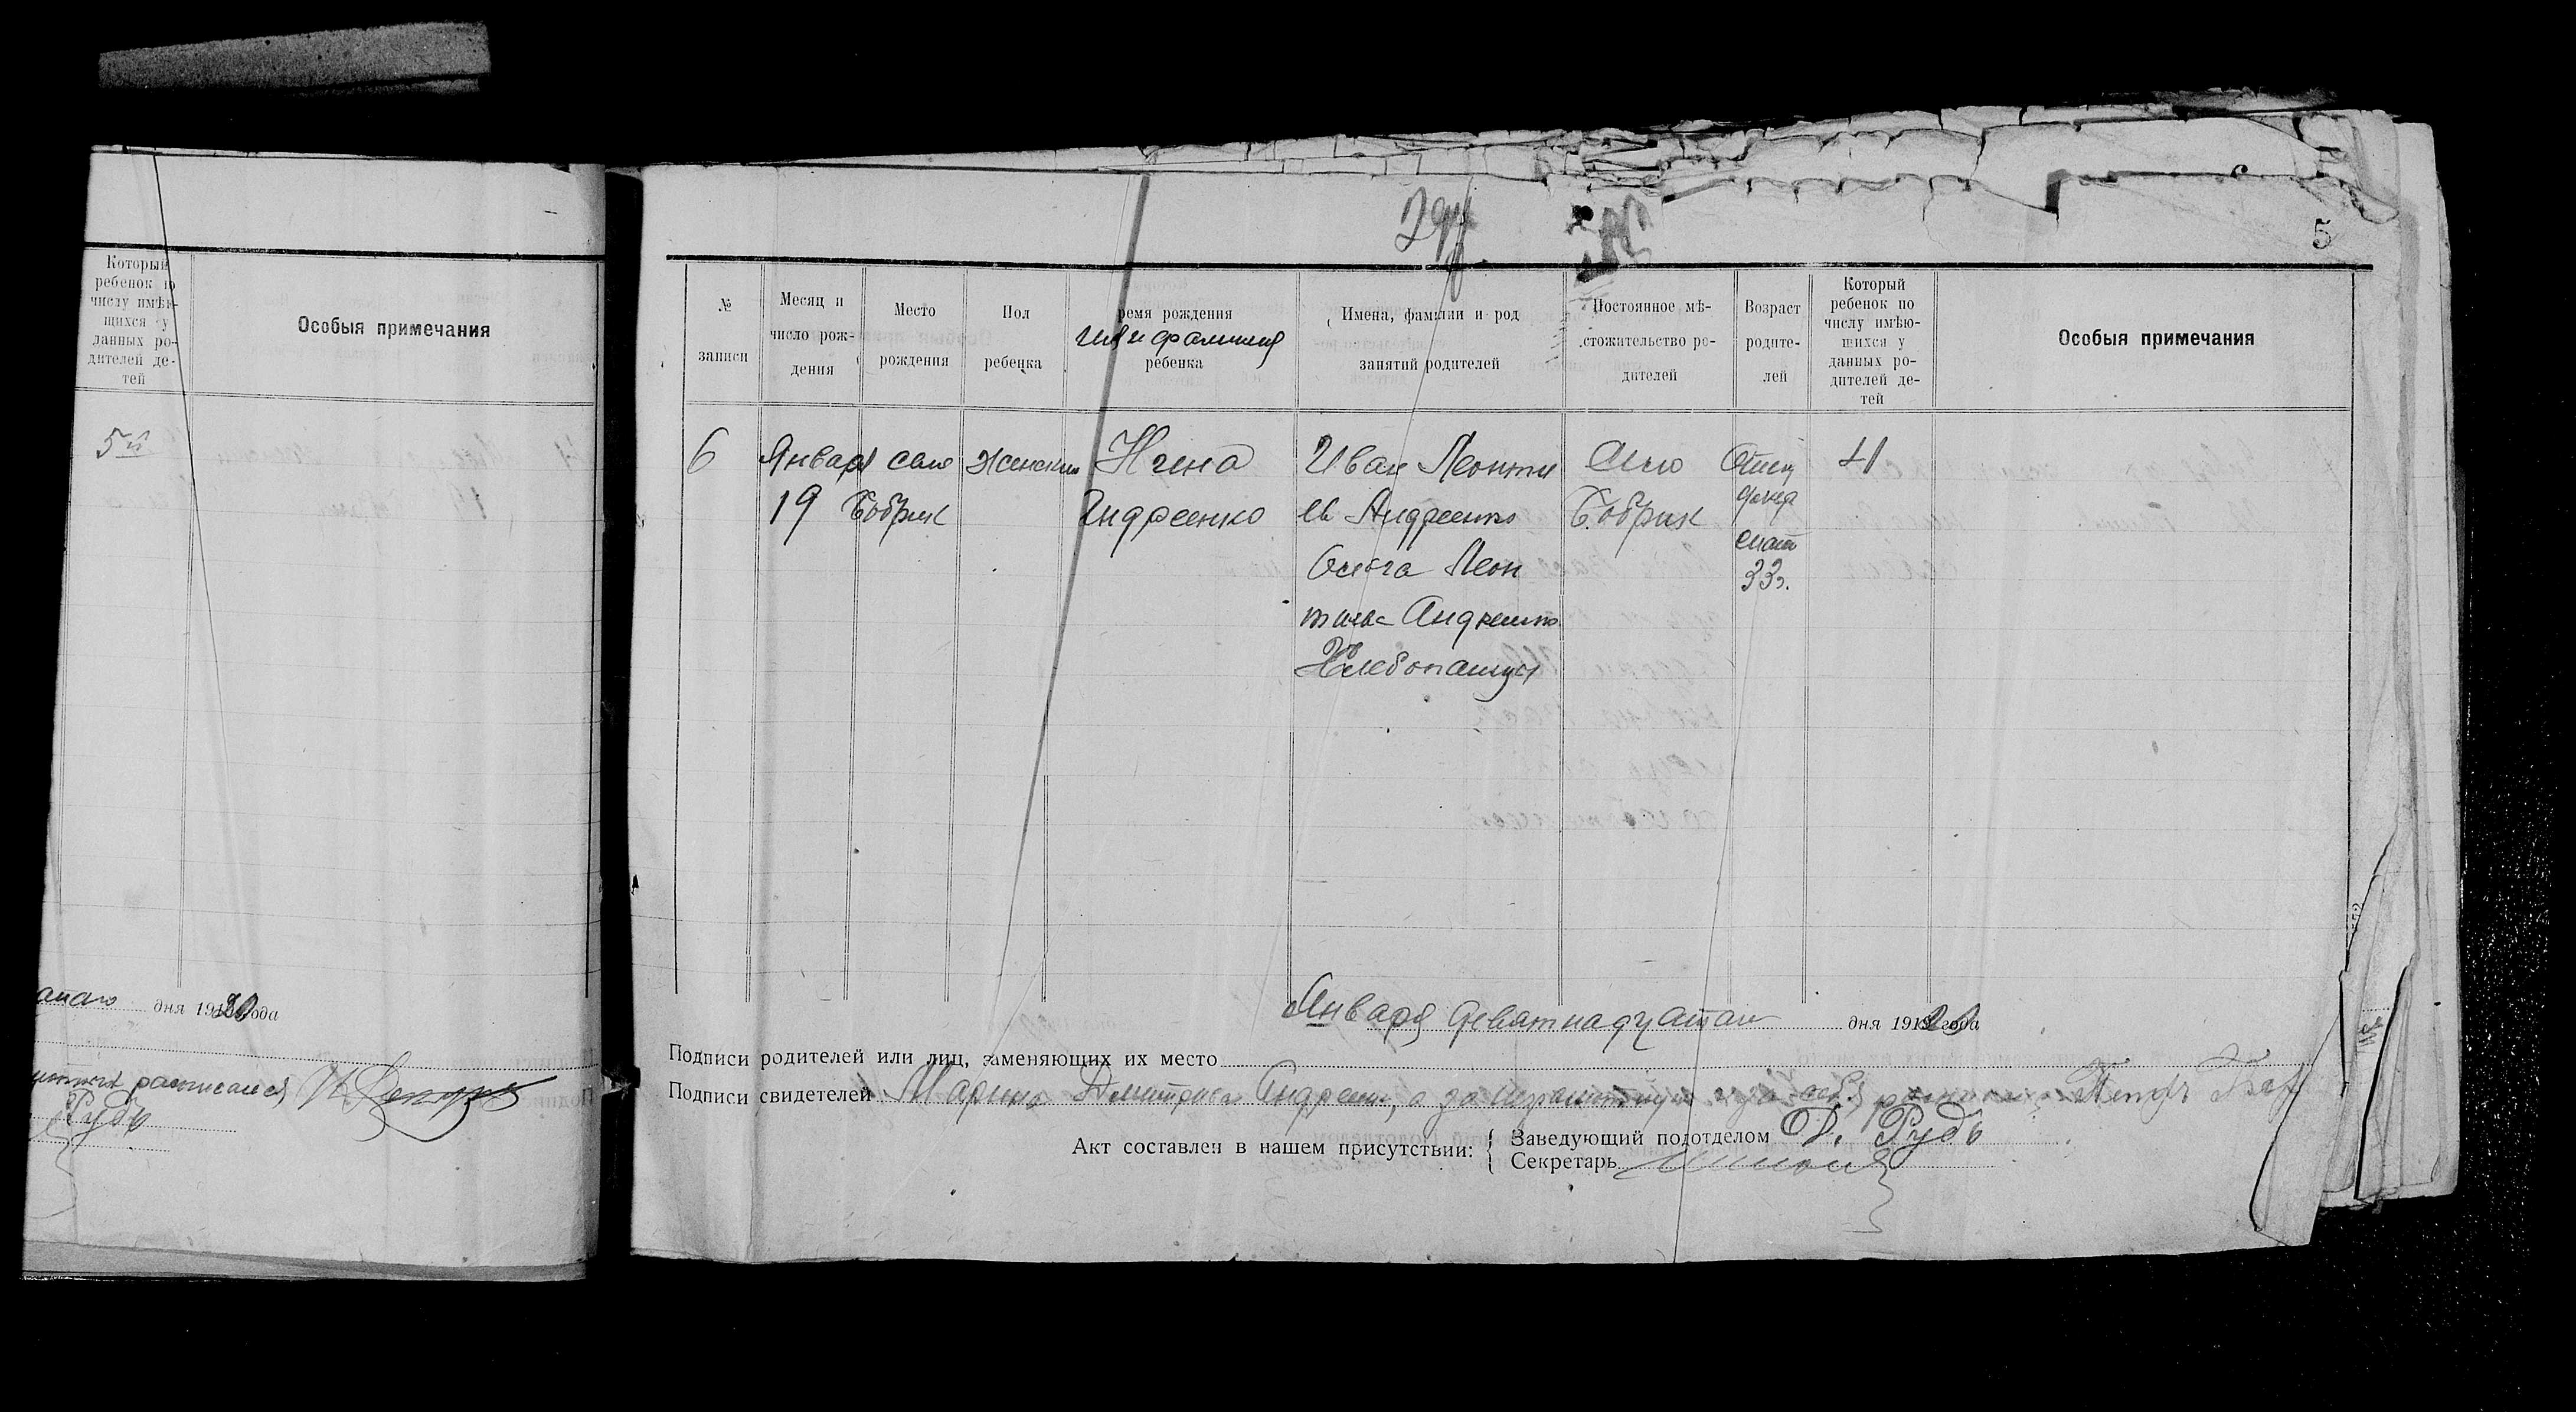 Который
ребенок по
числу имѣю-
щихся у
данных ро-
дителей де-
тей
Особыя примечания
5й
дня 1920 года
расписался
Рудь
5
№
записи
Месяц и
число рож-
дения
Место
рождения
Пол
ребенка
ремя рождения
имя и фамилия
ребенка
Имена, фамилии и род
занятий родителей
Постоянное мѣ-
стожительство ро-
дителей
Возраст
родите-
лей
Который
ребенок по
числу имѣю-
щихся у
данных ро-
дителей де-
тей
Особыя примечания
6
Января
19
село
Бобрик
женский
Нина
Андреенко
Иван Леонти
ев Андреенко
Леон
Андреенко
Хлебопашцы
село
Бобрик
Отец
мать
33 г.
4
Января девятнадцатаго дня 1920 года
Подписи родителей или лиц, заменяющих их место
Подписи свидетелей Марина Андреенко, а за неграмотную
Акт составлен в нашем присутствии: { Заведующий подотделом Рудь
Секретарь